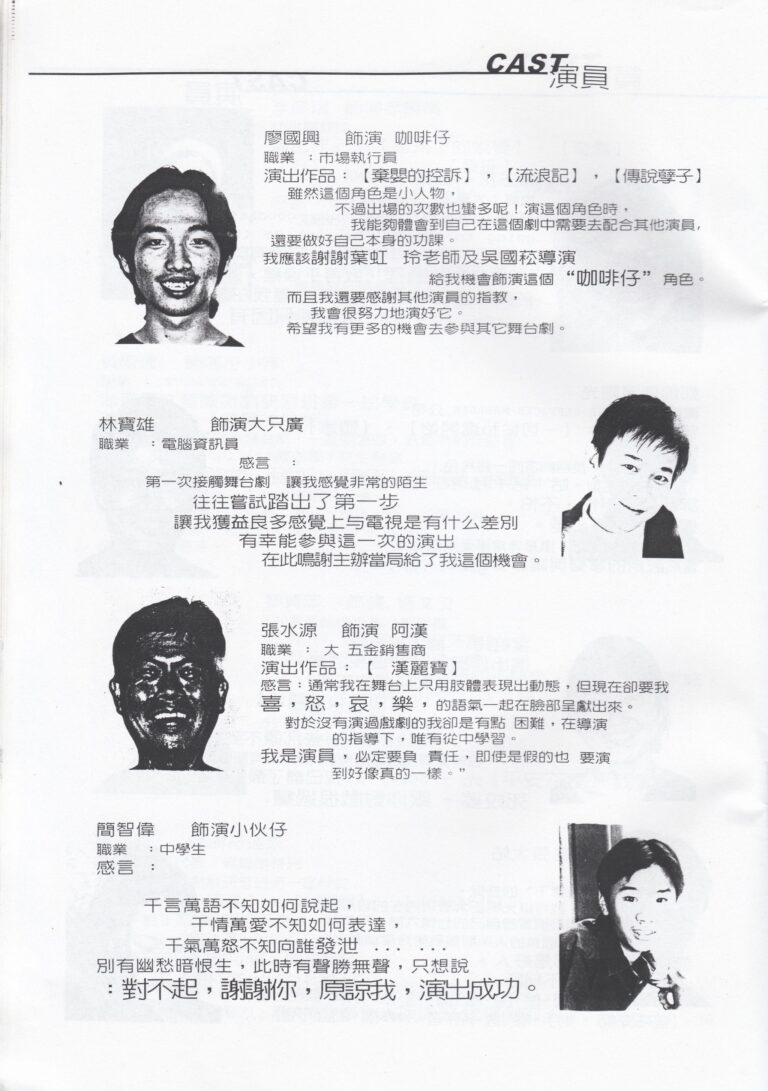 CAST演員
廖國興 飾演 咖啡仔
職業 ：市場執行員
演出作品：【棄嬰的控訴】，【流浪記】，【傳說孽子】
雖然這個角色是小人物，
不過出場的次數也蠻多呢！演這個角色時，
我能夠體會到自己在這個劇中需要去配合其他演員,
還要做好自己本身的功課。
我應該謝謝葉虹 玲老師及吳國崧導演
給我機會飾演這個 “咖啡仔” 角色。
而且我還要感謝其他演員的指教，
我會很努力地演好它。
希望我有更多的機會去參與其它舞台劇。
林寶雄 飾演大只廣
職業 ：電腦資訊員
感言 ：
第一次接觸舞台劇 讓我感覺非常的陌生
往往嘗試踏出了第一步
讓我獲益良多感覺上与電視是有什么差別
有幸能參與這一次的演出
在此鳴謝主辦當局給了我這個機會。
張水源 飾演 阿漢
職業 ： 大 五金銷售商
演出作品：【 漢麗寶】
感言：通常我在舞台上只用肢體表現出動態，但現在卻要我
喜，怒，哀，樂，的語氣一起在臉部呈獻出來。
對於沒有演過戲劇的我卻是有點 困難，在導演
的指導下，唯有從中學習。
我是演員，必定要負 責任，即使是假的也 要演
到好像真的一樣。”
簡智偉 飾演小伙仔
職業 ：中學生
感言 ：
千言萬語不知如何說起，
千情萬愛不知如何表達，
千氣萬怒不知向誰發泄 .... .. ....
別有幽愁暗恨生，此時有聲勝無聲，只想說
：對不起，謝謝你，原諒我，演出成功。